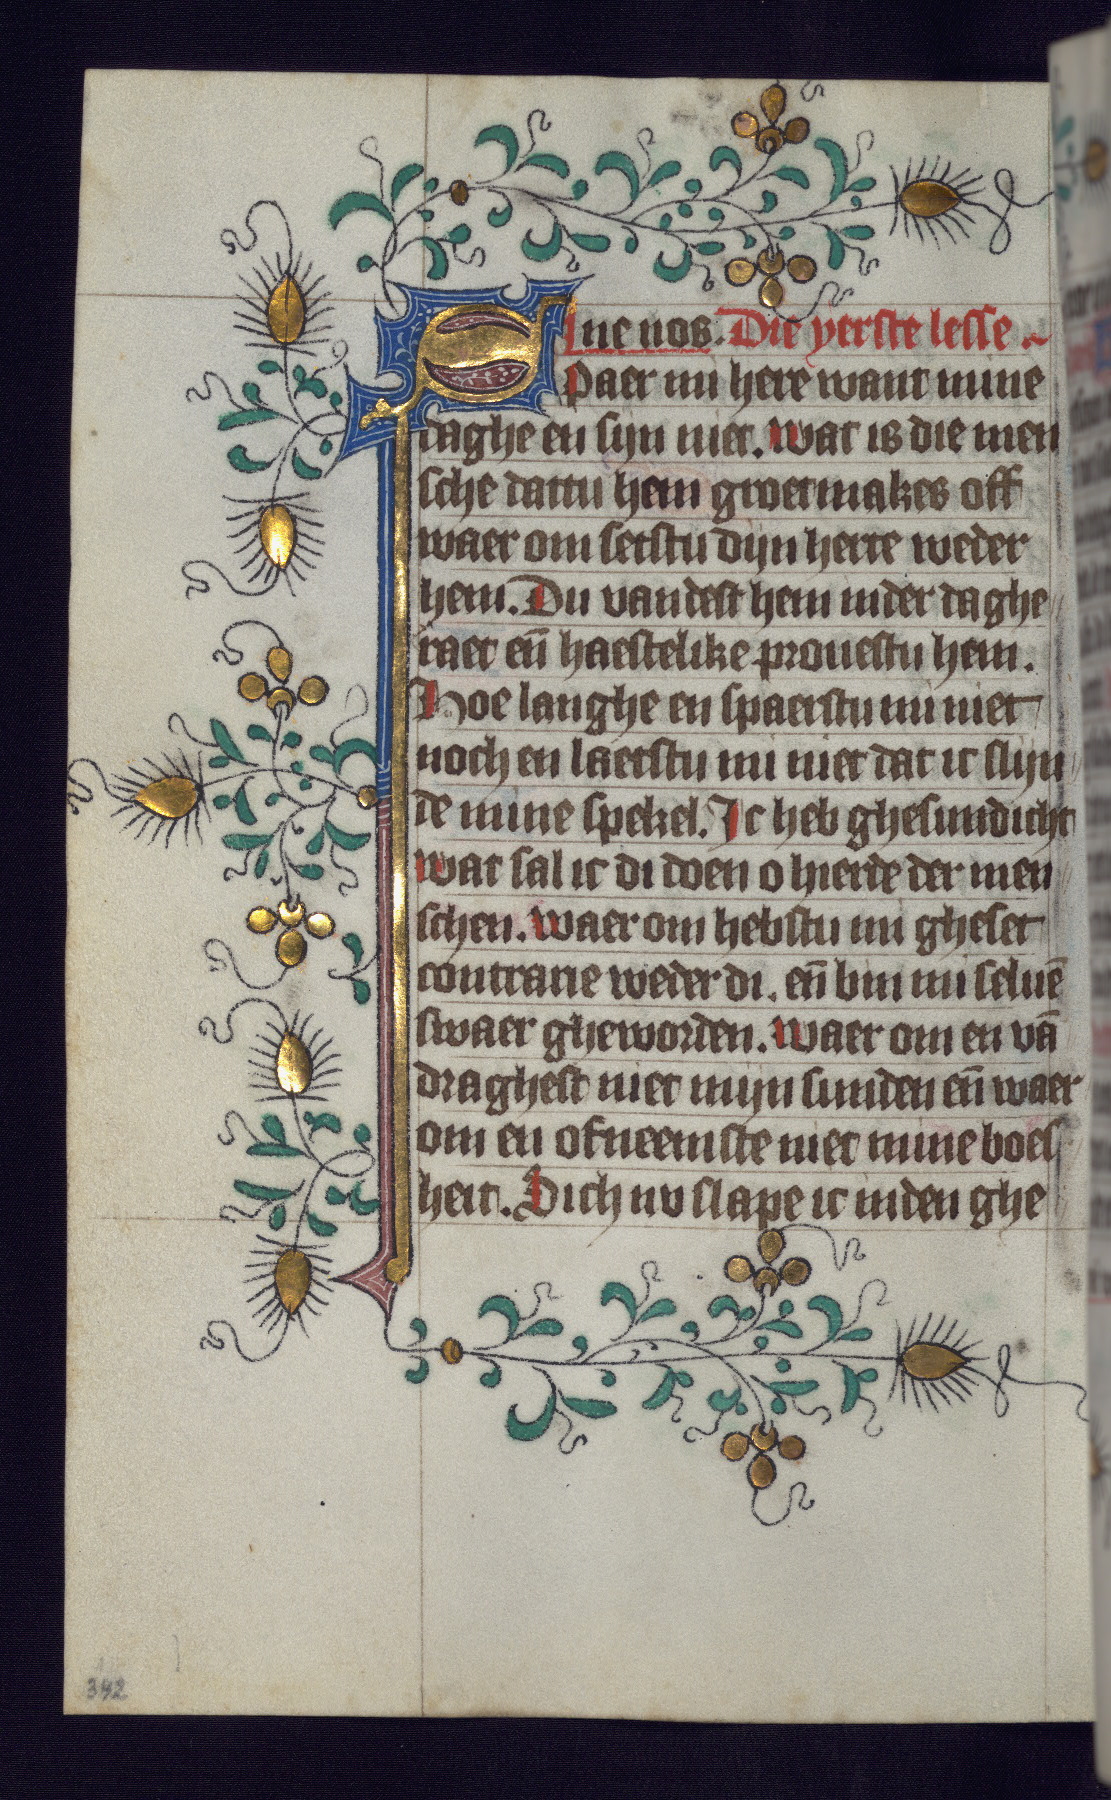 Ine nos. Die yerste lesse
Spaer mi here want mine
daghe en sijn niet. Wat is die men
sche dattu hem groet makes off
waer om setstu dijn herte weder
hem. Du vandest hem inder daghe
raet eñ haestelike prouestu hem.
Hoe langhe en spaerstu mi niet
noch en laetstu mi niet dat ic slijn
de mine spekel. Ic heb ghesundicht
wat sal ic di doen o hierde der men
schen. Waer om hebstu mi gheset
contrarie weder di. eñ bin mi seluē
swaer gheworden. Waer om en vā
draghest niet mijn sunden eñ waer
om en ofneemste niet mine boes
heit. Sich nv slape ic inden ghe
342